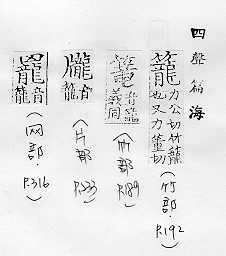 四聲篇海
籠 力公切竹籠也又力董切
(竹部. P.192)
音籠義同
部. P.189)
音籠
(片部. P.233)
音籠
(网部. P.316)